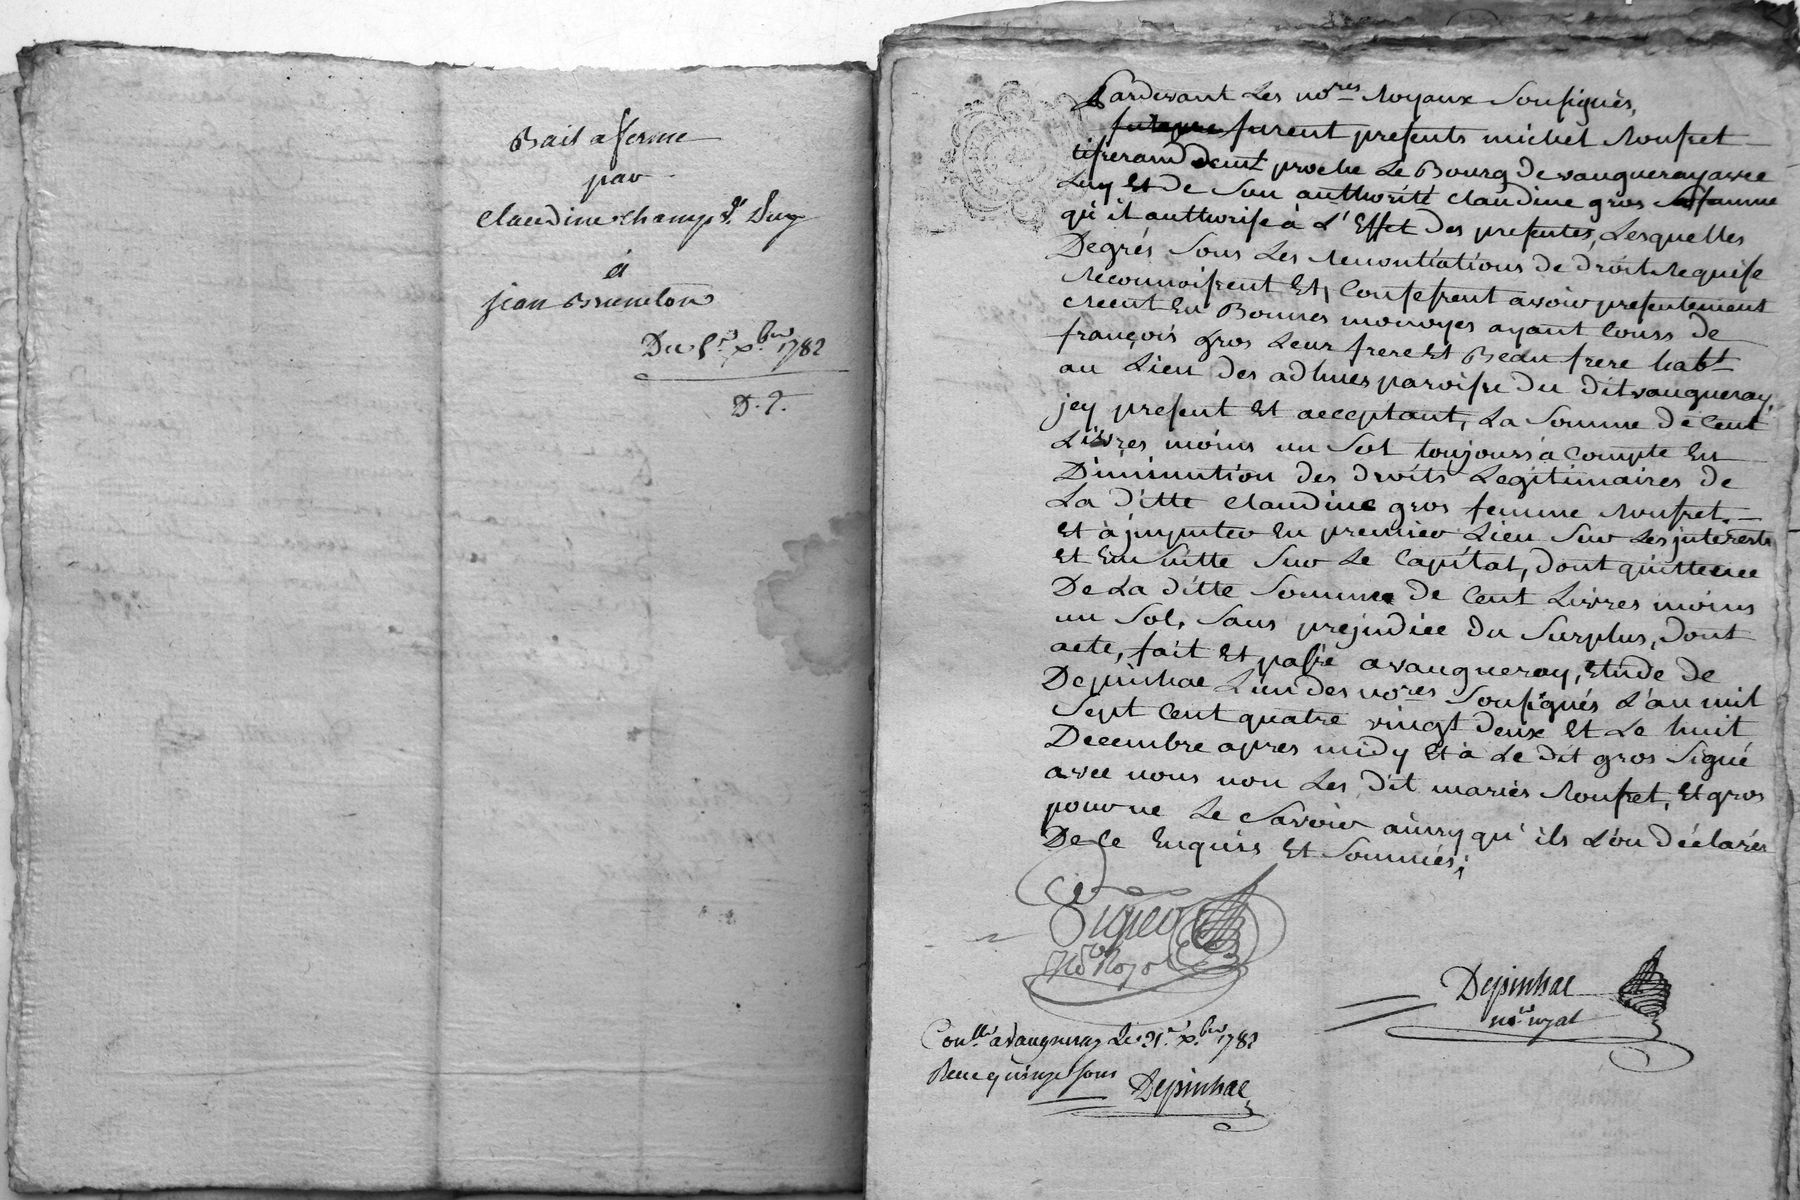 Bail a ferme
par
Claudine champ v.e Duy
à
jean Brunelon
Du 5.e x.bre 1782
D. 7.
Pardevant Les no.res Royaux Sousignés,
furent presents michel Roufret
tisserand dem.t proche Le Bourg de vaugneray avec
Luy Et de Son authorité claudine gros sa femme
qu'il authorise à L'Effet des presentes, Lesquelles
Degrés Sous Les renontiations de droit requise
reconnoissent Et Confessent avoir presentement
receut En Bonnes monoyes ayant Cours de
françois gros Leur frere Et Beau frere hab.t
au Lieu des adhues paroisse du dit vaugneray,
jcy present Et acceptant, La Somme de Cent
Livres moins un Sol toujours à Compte En
Diminution des droits Legitimaires de
La ditte claudine gros femme Roufret.
Et à jmputer En premier Lieu Sur Les jnterests
Et Ensuitte Sur Le Capital, dont quittence
De La ditte Somme de Cent Livres moins
un Sol, Sans prejudice du Surplus, Dont
acte, fait Et passé a vaugneray, Etude de
Depinhac L'un des no.res Sousignés L'an mil
Sept Cent quatre vingt deux Et Le huit
Decembre apres midy Et à Le dit gros Signé
avec nous non Les dit mariés Roufret, Et gros
pour ne Le Savoir ainsy qu'ils L'on déclarés
De Ce Enquis Et Sommés;
No.re Royal
Depinhac
no.re royal
Con.llé a vaugneray Le 21.e x.bre 1782
Recu quinze sous Depinhac